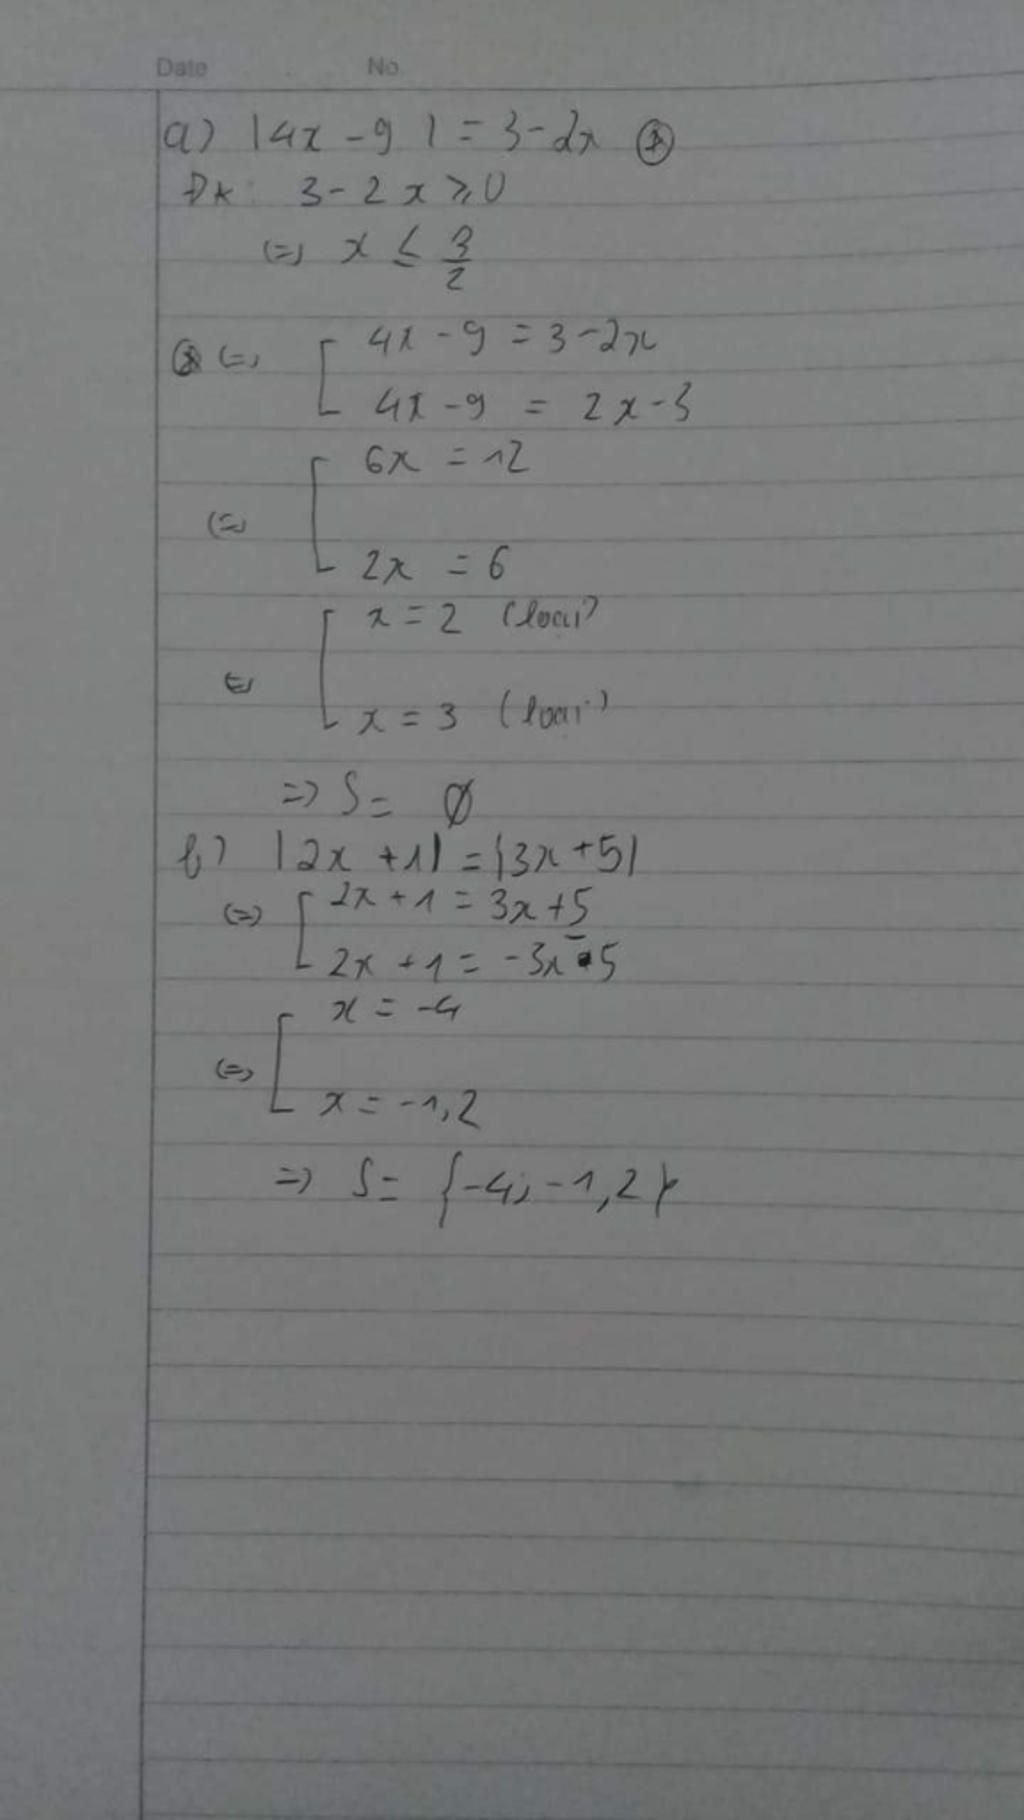 Date No
a) |4x - 9| = 3 - 2x (*)
ĐK: 3 - 2x ≥ 0
(=) x ≤ 3/2
(*) (=) [ 4x - 9 = 3 - 2x
4x - 9 = 2x - 3
(=) [ 6x = 12
2x = 6
(=) [ x = 2 (loại)
x = 3 (loại)
=> S = ∅
b) |2x + 1| = |3x + 5|
(=) [ 2x + 1 = 3x + 5
2x + 1 = -3x - 5
(=) [ x = -4
x = -1,2
=> S = {-4; -1,2}